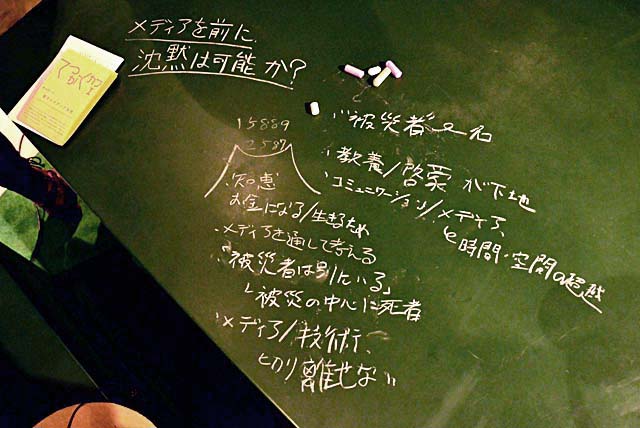 メディアを前に、
沈黙は可能か?
てつがくカフェ
15889
2587
・知恵
お金になる/生きるため
・メディアを通して考える
・「被災者は別にいる」
被災の中心に死者
・メディア/技術、
と切り離せない
・"被災者"
・教養/啓蒙 が下地
・コミュニケーション/メディア、
と時間・空間の超越